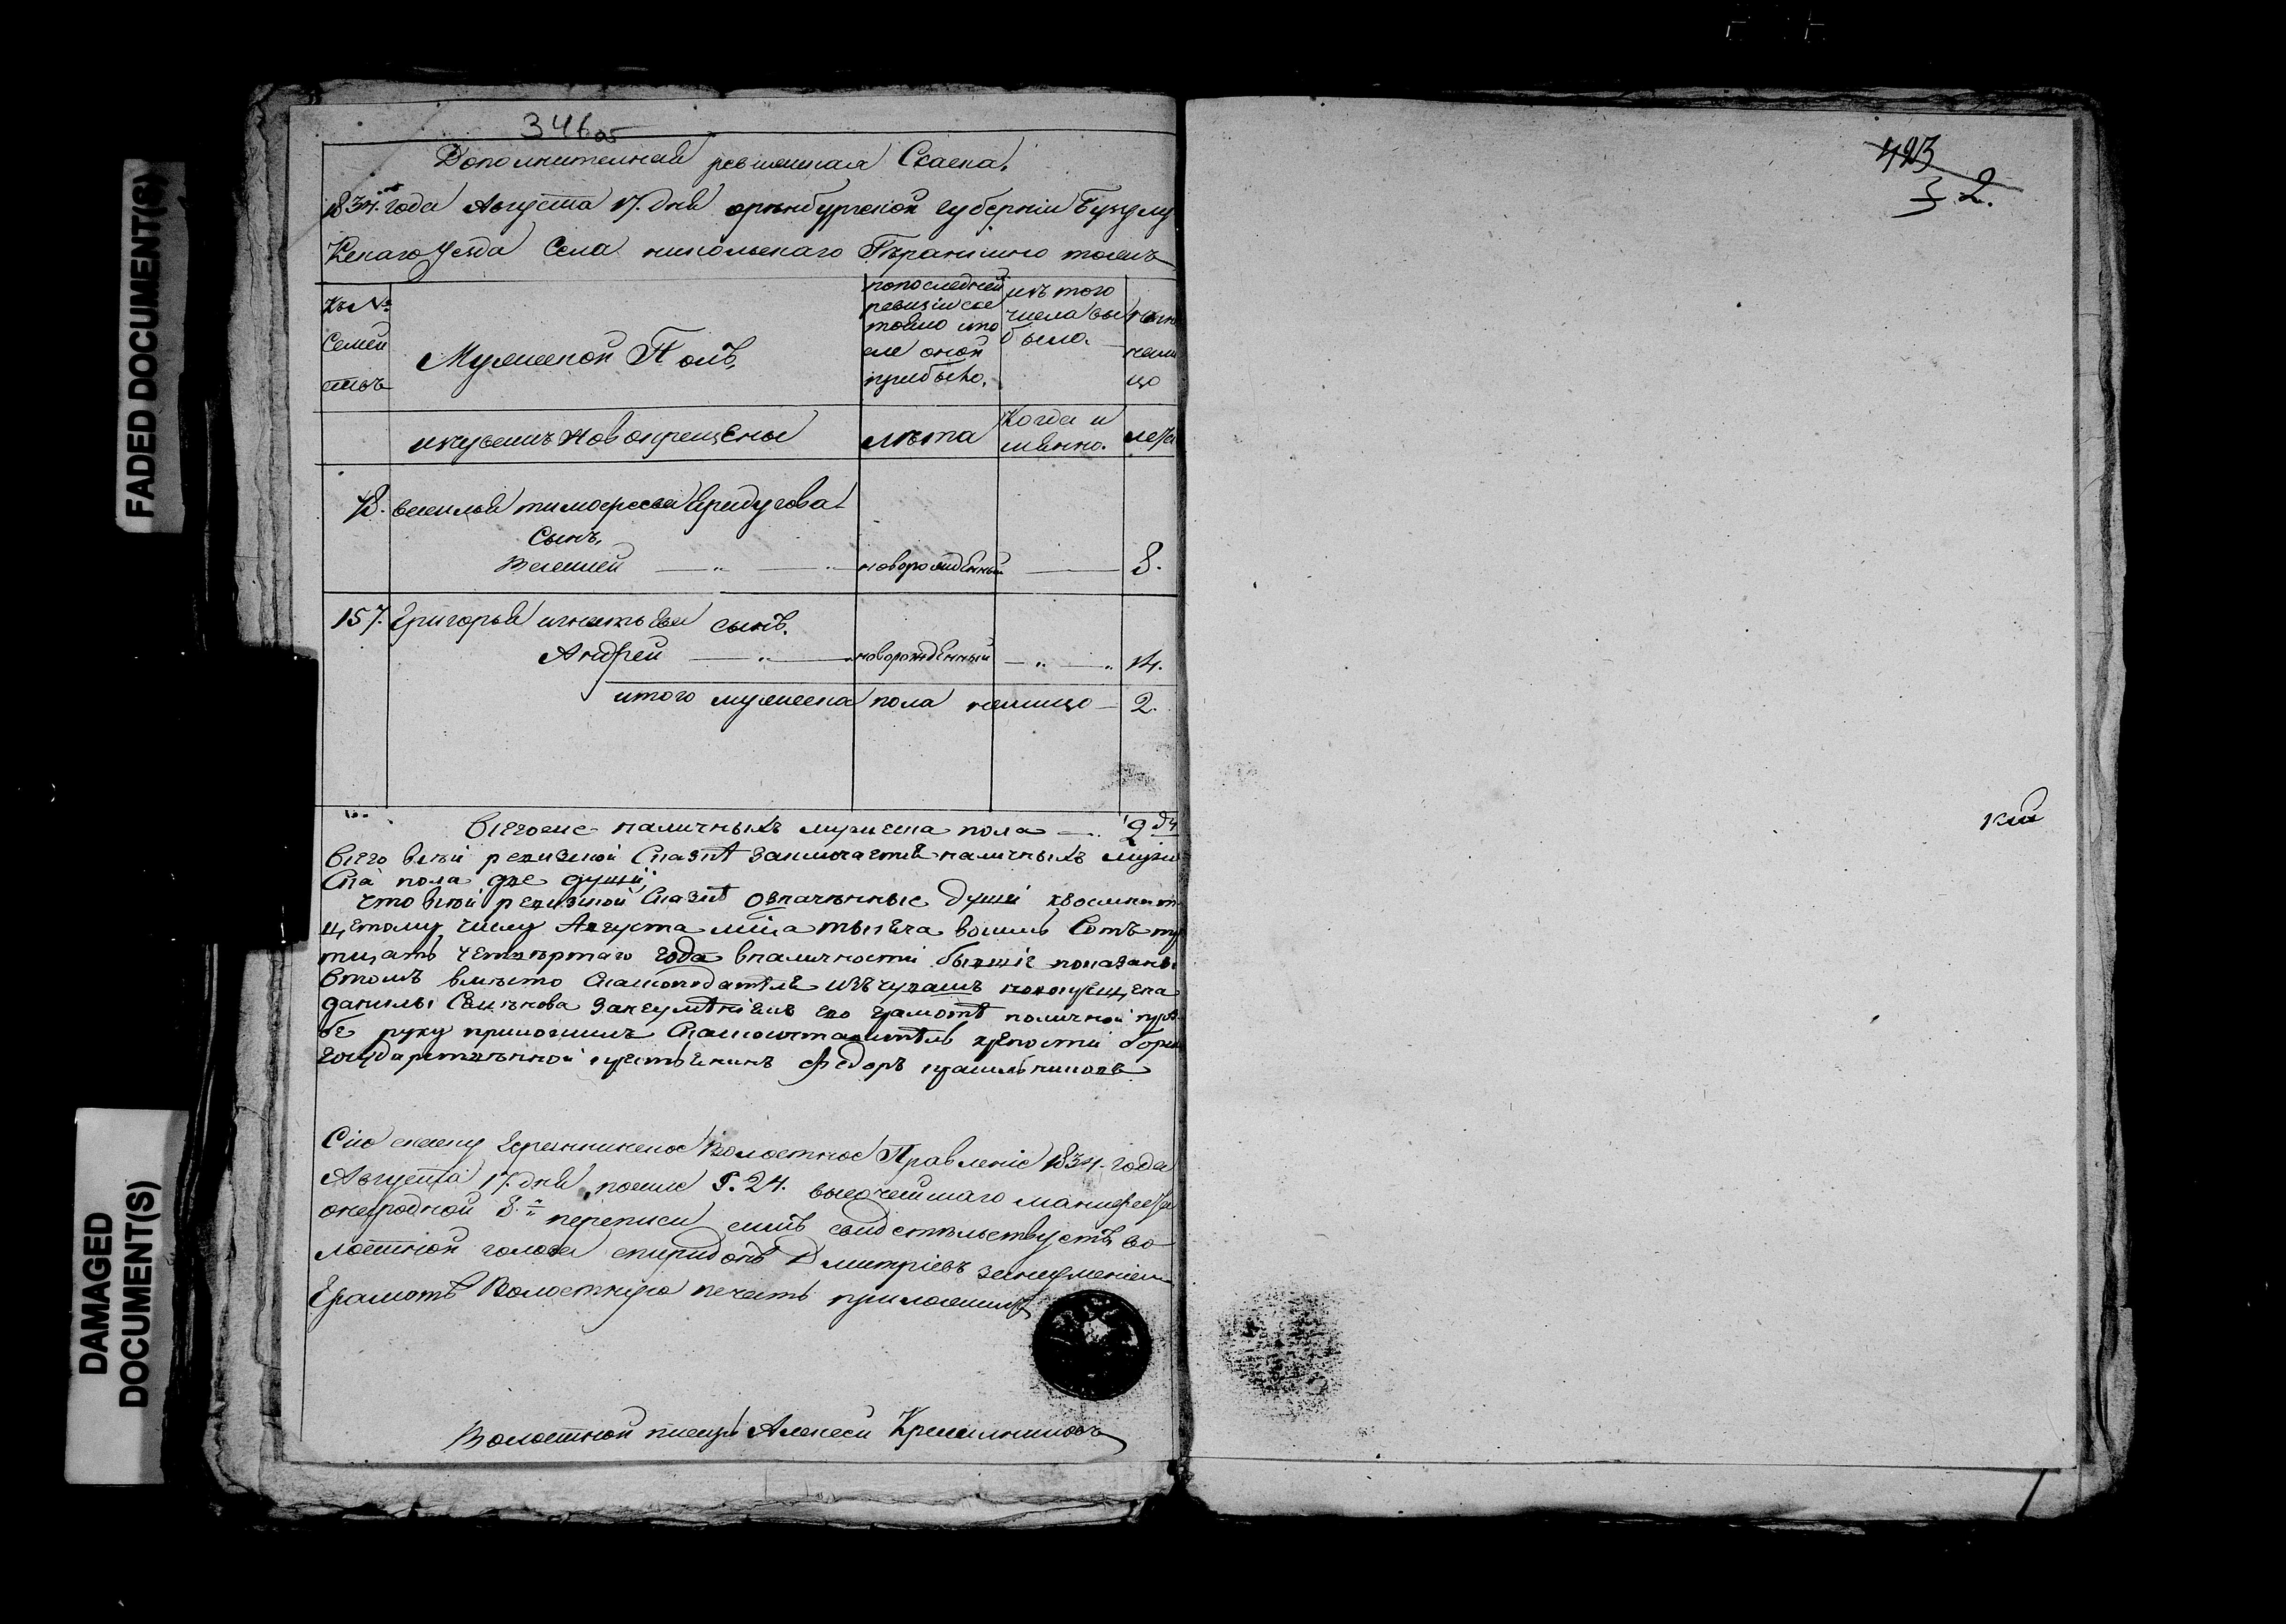 FADED DOCUMENT(S)
DAMAGED
DOCUMENT(S)
346 об
Дополнителная ревижская Скаска.
1834. года Августа 17. дня оренбургской губернии Бузулу
Кскаго уезда Села никольскаго тожъ
Къ №
Семей
ствъ
Мужеской Полъ,
попоследней
ревизiи сос
тояло ипо
сле оной
прибыло,
изъ того
числа вы
было.
ныне
нали
цо
изчувашъ новокрещены
лѣта
Когда и
мянно.
лета
78. василья тимофеева
Сынъ,
новорожденный 8.
157. Григорья игнатьева сынъ.
Андрей новорожденный 14.
итого мужеска пола налицо 2.
Всегоже наличныхъ мужеска пола 2 ду
Всего всей ревизкой Сказкѣ заключается наличныхъ муже
Ска пола две души
что всей ревизкой Сказкѣ означенные души
Августа мца тысяча восимь Сотъ тр
тцать четвѣртаго года вналичности бывшiе показаны
Втомъ вместо Сказкоподатѣля изъчувашъ новокрещена
данилы Семенова занеумѣнiемъ его грамотѣ поличной прозь
бе руку приложилъ крепости борск
государственной крестьянинъ федоръ
Сию скаску Волостное Правленiе 1834. года
Августа 17. дня, посиле §. 24. высочайшаго манифеста
онародной 8. й переписи симъ свидетельствуетъ во
лостной голова спиридонъ Дмитрiевъ занеуменiемъ
Грамотѣ Волостную печать приложилъ
Волостной писарь Алексей
493
32.